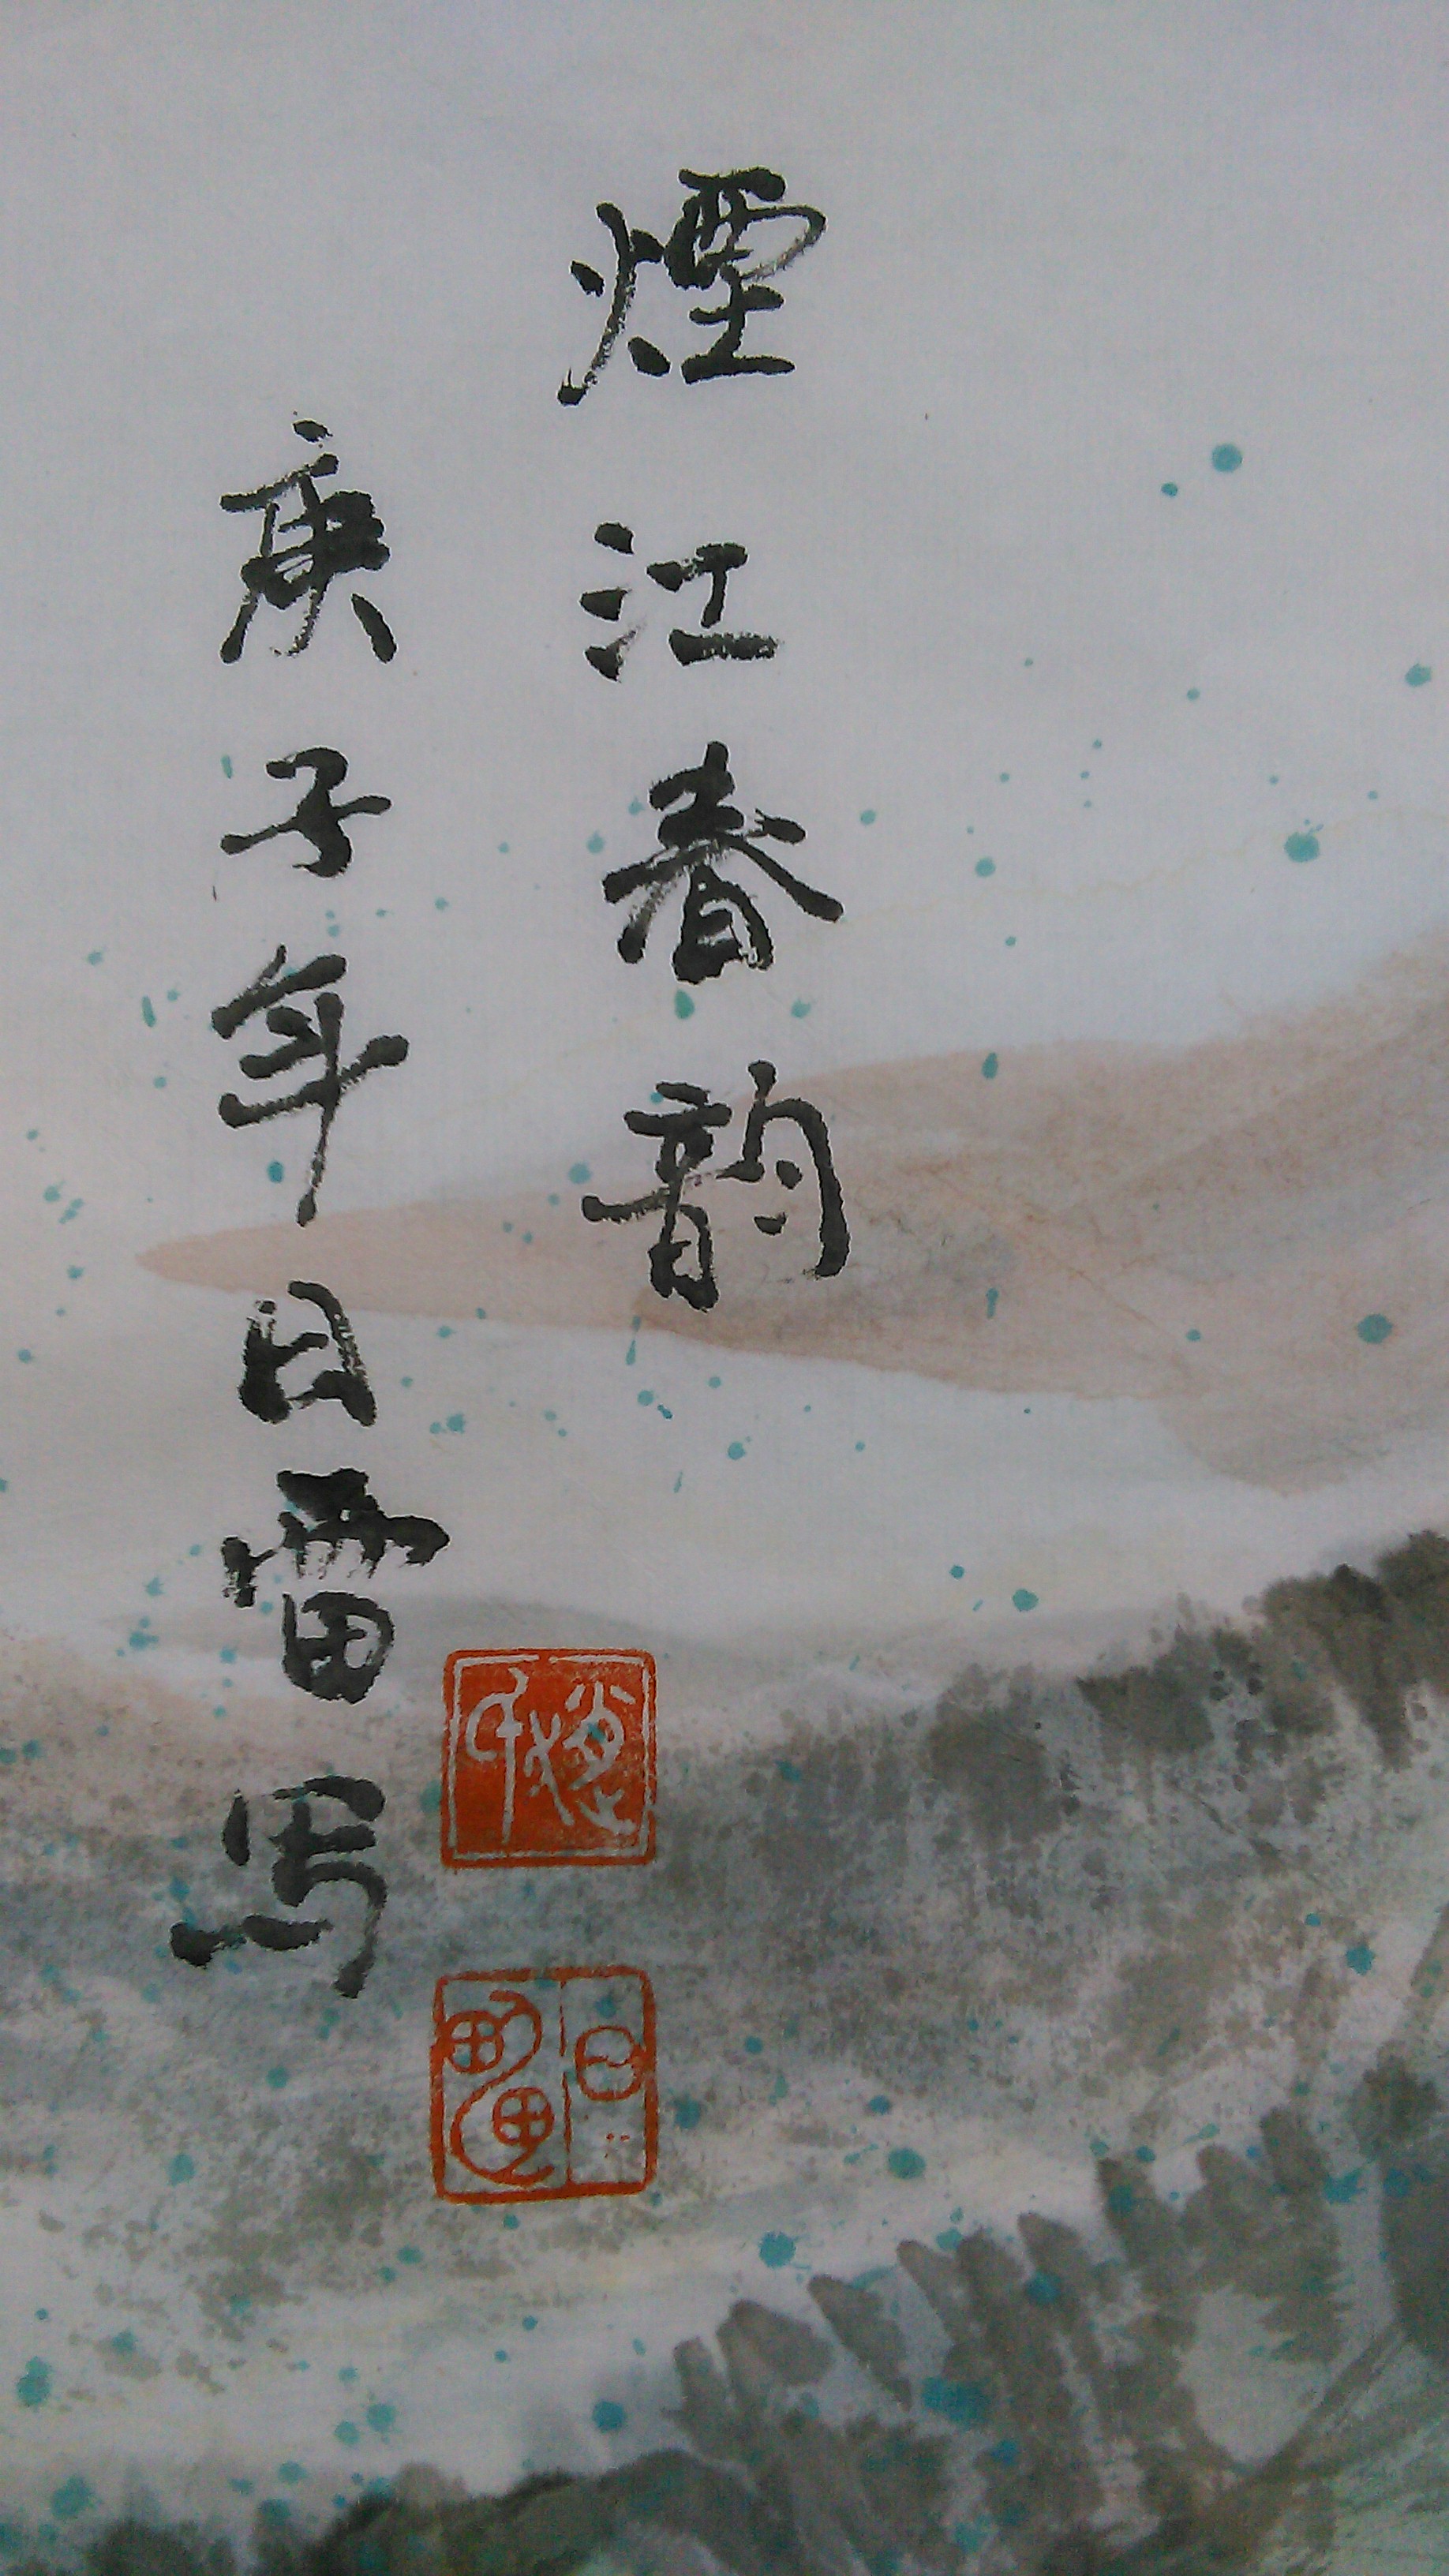 煙江春韵
庚子年日雷写